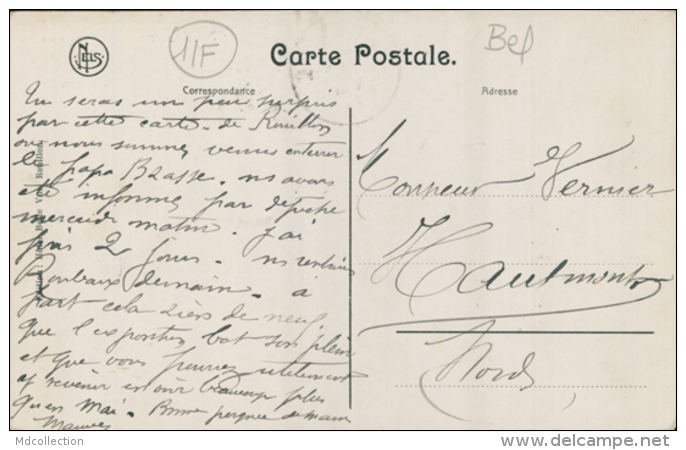 NELS
11F
Bef
Carte Postale.
Correspondance
Adresse
Tu seras un peu surpris
par cette carte de Rouillon
où nous sommes venus enterrer
le papa Brasse. ns avons
été informés par dépêche
mercredi matin. J'ai
pris 2 jours. ns rentrons
Roubaix demain. à
part cela rien de neuf
que l'exposition bat son plein
et que vous pourrez utilement
y revenir en voir beaucoup plus
qu'en Mai. Bonne poignée de main
Monsieur Vernier
Hautmont
Nord
Mdcollection
www.delcampe.net